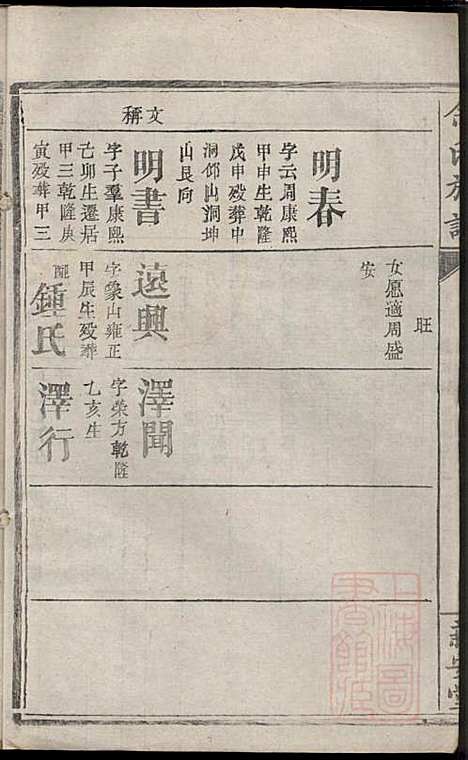 明春
字云周康熙
甲申生乾隆
戊申殁葬中
洞邻山洞坤
山艮向
文稱
明書
字子羣康熙
己卯生遷居
甲三乾隆庚
寅殁葬甲三
旺
女愿適周盛
安
遠興
字象山雍正
甲辰生殁葬
配
鍾氏
澤聞
字榮方乾隆
乙亥生
澤行
上海圖
書館藏